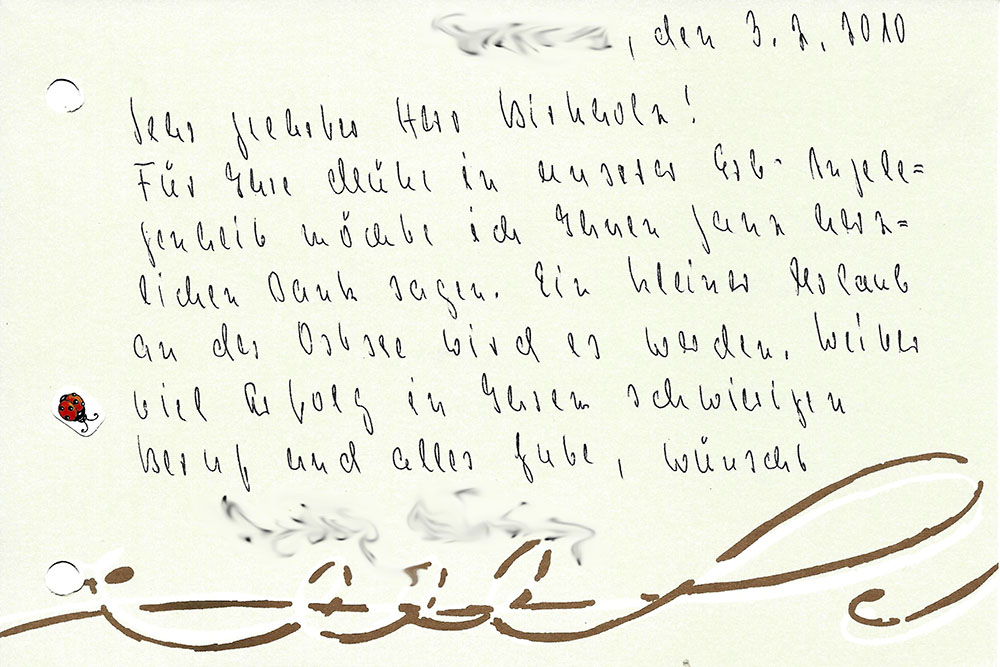 , den 3.2.2010
Sehr geehrter Herr Birkholz!
Für Ihre Mühe in unserer Erb-Angele=
genheit möchte ich Ihnen ganz herz=
lichen Dank sagen. Ein kleiner Urlaub
an der Ostsee wird es werden. Weiter
viel Erfolg in Ihrem schwierigen
Beruf und alles Gute, wünscht